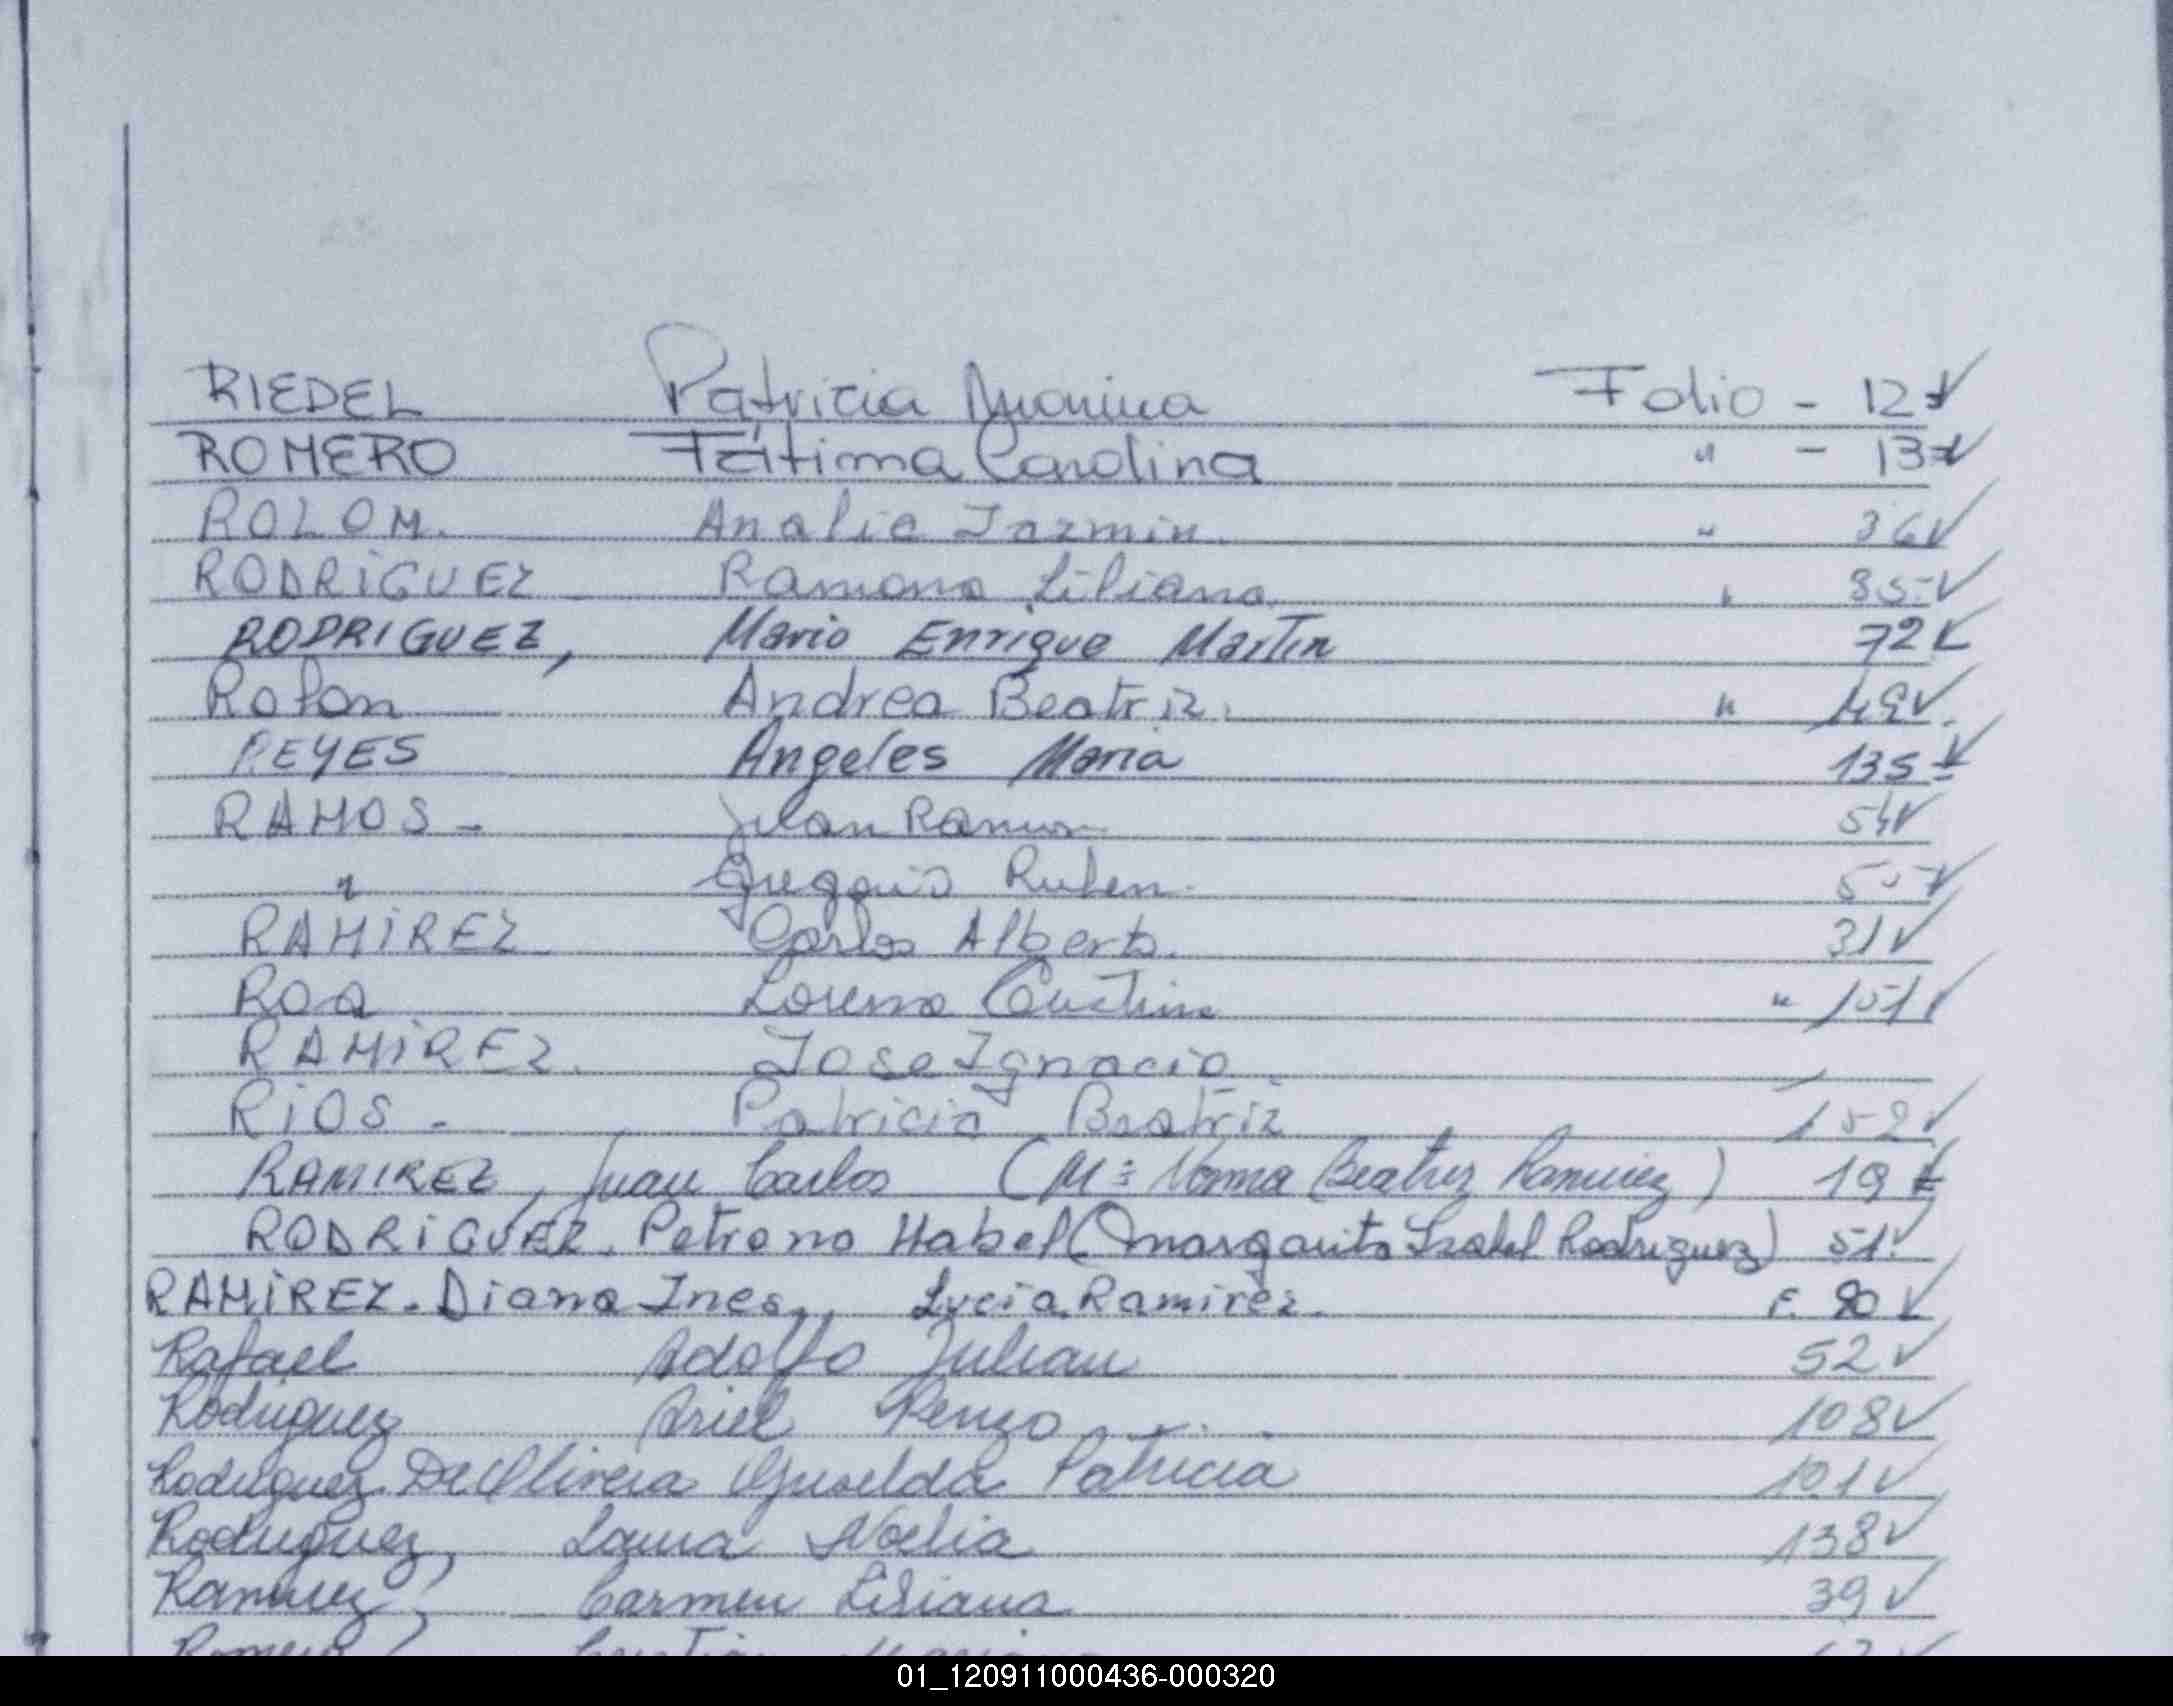 RIEDEL Patricia Folio - 12 ✓
ROMERO Fátima Carolina " - 13 ✓
ROLOM. Analia Jazmin. " 36 ✓
RODRIGUEZ Ramona Liliana. " 35 ✓
RODRIGUEZ, Mario Enrique Martin 72 ✓
Rolon Andrea Beatriz. " 49 ✓
REYES Angeles Maria 135 ✓
RAMOS - Juan Ramon 54 ✓
" Gregorio Ruben. 55 ✓
RAMIREZ Carlos Alberto. 31 ✓
Roa Lorena Cristina " 151 ✓
RAMIREZ. Jose Ignacio.
RIOS - Patricia Beatriz 152 ✓
RAMIREZ, Juan Carlos (M: Norma Beatriz Ramirez) 19 ✓
RODRIGUEZ. Petrona Mabel (Margarita Isabel Rodriguez) 51 ✓
RAMIREZ. Diana Ines, Lucia Ramirez. F. 80 ✓
Rafael Adolfo Julian 52 ✓
Rodriguez Ariel Renzo 108 ✓
Rodriguez De Oliveira Griselda Patricia 101 ✓
Rodriguez, Laura Noelia 138 ✓
Ramirez, Carmen Liliana 39 ✓
01_120911000436-000320